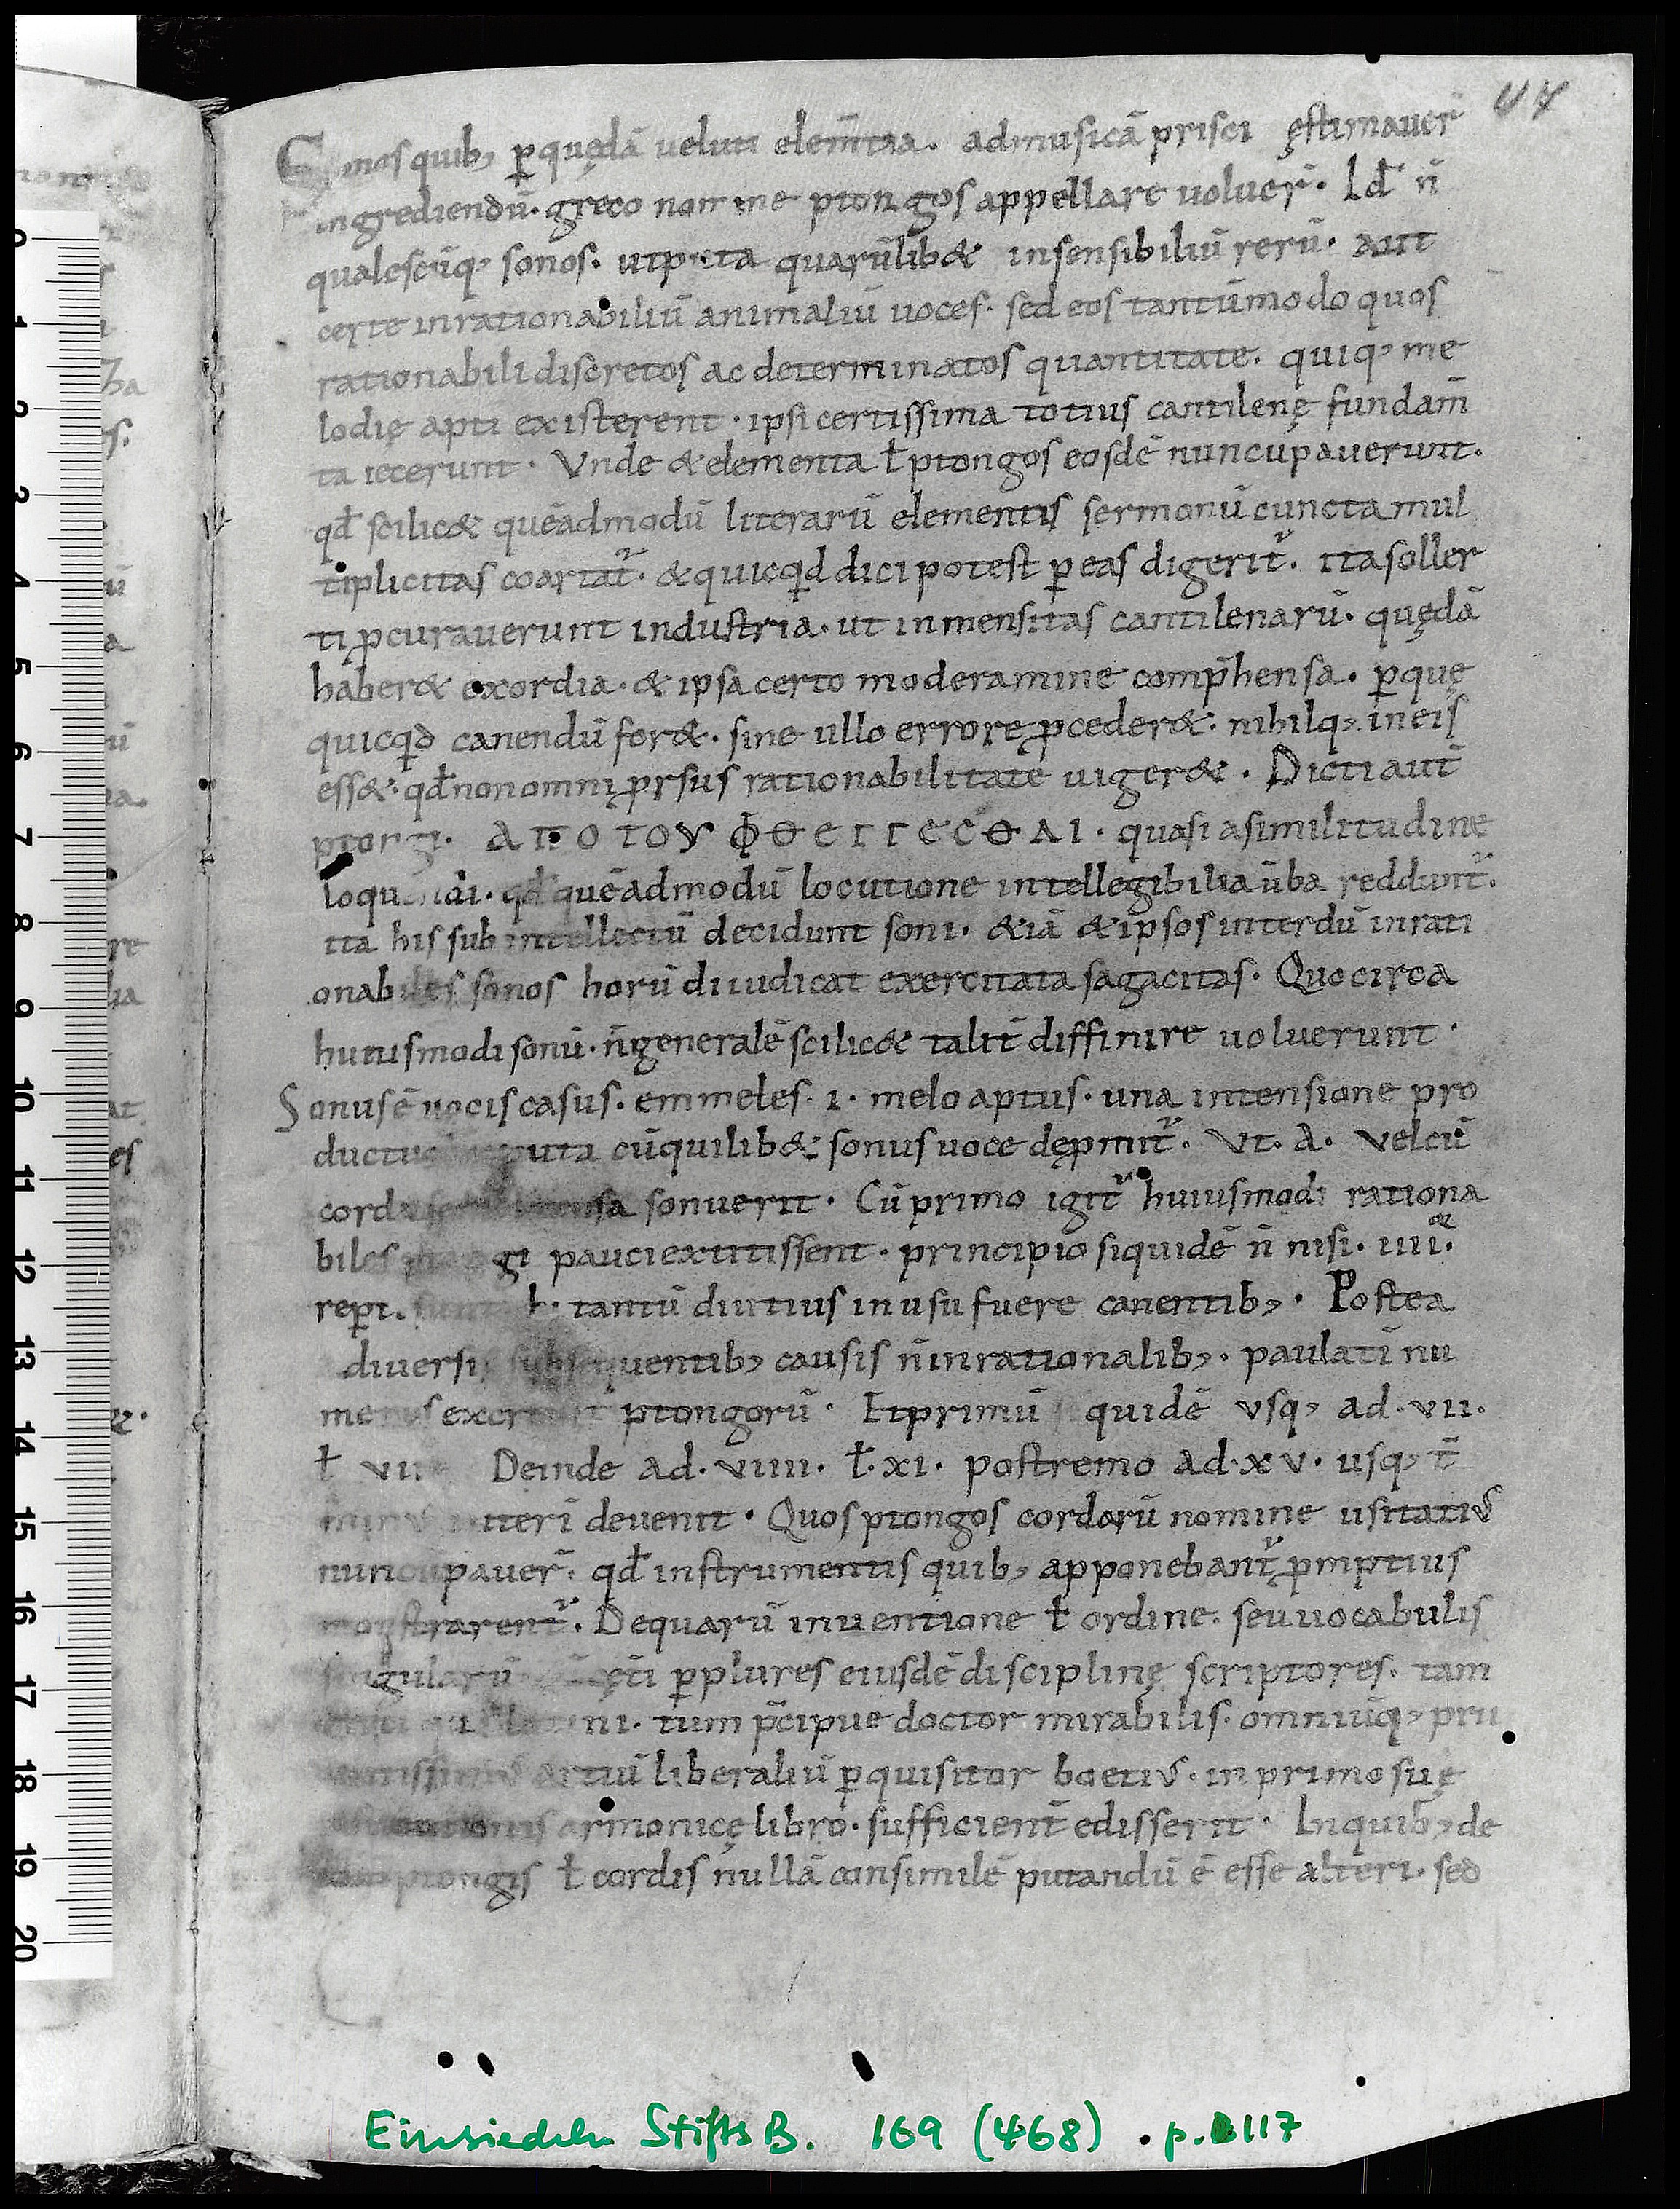 117
Sonos quib; ꝑ quędā veluti elem̄taa. admusicā prisci ęstimauer̄
ingrediendū. greco nomine ptongos appellare uoluer̄. Id̄ n̄
qualescūq; sonos. utputa quarūlib& insensibiliū rerū. aut
certe inrationabiliū animaliū uoces. sed eos tantūmodo quos
rationabili discretos ac determinatos quantitate. quiq; me
lodię apti existerent. ipsi certissima totius cantilenę fundam̄
ta iecerunt. Vnde & elementa ł ptongos eosdē nuncupauerunt.
qd̄ scilic& quēadmodū literarū elementis sermonū cuncta mul
tiplicitas coartat᷑. & quicqd dici potest ꝑ eas digerit᷑. ita soller
ti ꝓcurauerunt industria. ut inmensitas cantilenarū. quędā
haber& exordia. & ipsa certo moderamine comp̄hensa. ꝑ quę
quicqd canendū for&. sine ullo errore ꝓceder&. nihilq; in eis
ess&. qd̄ non omni ꝓrsus rationabilitate uiger&. Dicti aut̄
ptongi. ΑΠΟ ΤΟΥ ΦΘΕΓΓΕCΘΑΙ. quasi a similitudine
loquendi. qd̄ quēadmodū locutione intellegibilia ūba reddunt᷑.
ita his sub intellectū decidunt soni. &iā & ipsos interdū inrati
onabiles sonos horū diiudicat exercitata sagacitas. Quocirca
huiusmodi sonū. n̄ generalē scilic& talit̄ diffinire uoluerunt.
Sonus ē uocis casus. emmeles. i. melo aptus. una intensione pro
ductus uta cū quilib& sonus uoce depmit᷑. Vt. A. Vel cū
corda sonuerit. Cū primo igit᷑ huiusmodi rationa
biles gi pauci extitissent. principio siquidē n̄ nisi. IIII.
repti sunt h. tantū diutius in usu fuere canentib;. Postea
diuersis subsequentib; causis n̄ inrationalib;. paulatī nu
merus excreuit ptongorū. Et primū quidē vsq; ad. VII.
ł VII Deinde ad. VIIII. ł. XI. postremo ad. XV. usq; t̄
devenit. Quos ptongos cordarū nomine usitatiꝰ
nuncupauer̄. qd̄ instrumentis quib; apponebant᷑ ꝓmptius
monstrarent᷑. De quarū inuentione ł ordine. seu uocabulis
singularū ꝑ plures eiusdē disciplinę scriptores. tam
latini. tum p̄cipue doctor mirabilis. omniūq; pru
artiū liberaliū ꝑquisitor boetiꝰ. in primo suę
armonicę libro. sufficient̄ edisserit. In quib; de
ptongis ł cordis nullā consimilē putandū ē esse alteri. sed
Einsiedeln StiftsB. 169 (468) . p. 117
0
1
2
3
4
5
6
7
8
9
10
11
12
13
14
15
16
17
18
19
20